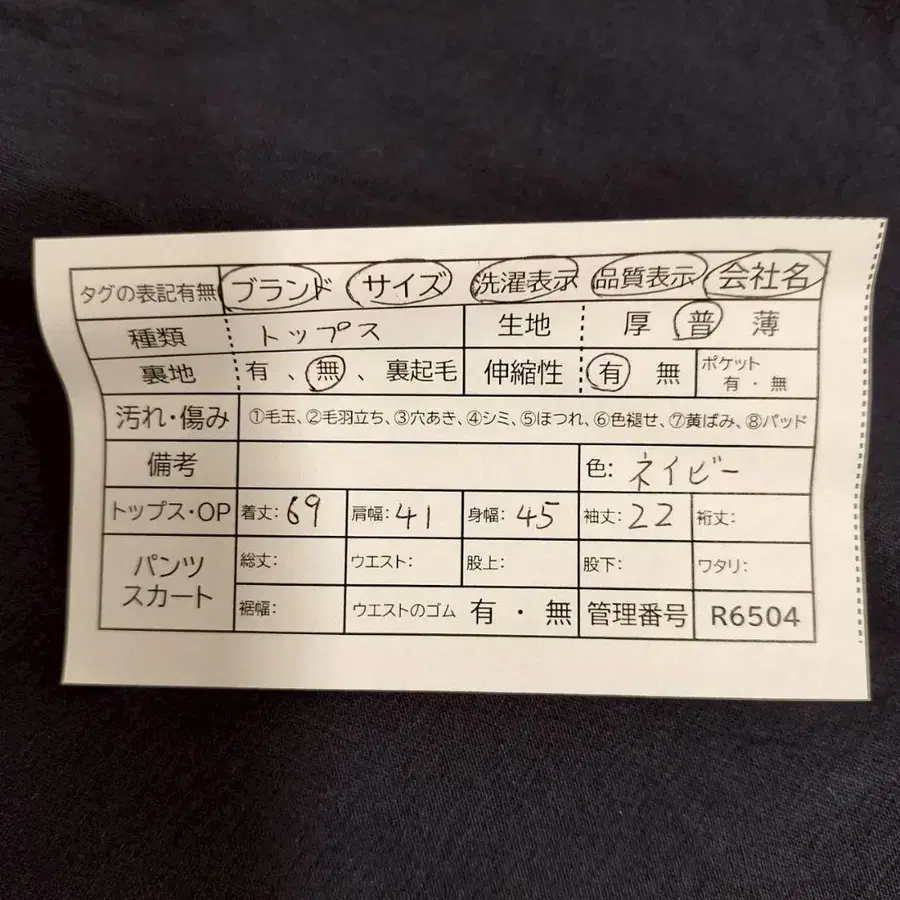 タグの表記有無 ブランド サイズ 洗濯表示 品質表示 会社名
種類 トップス 生地 厚 普 薄
裏地 有 、 無 、 裏起毛 伸縮性 有 無 ポケット 有 ・ 無
汚れ・傷み ①毛玉、②毛羽立ち、③穴あき、④シミ、⑤ほつれ、⑥色褪せ、⑦黄ばみ、⑧パッド
備考 色: ネイビー
トップス・OP 着丈: 69 肩幅: 41 身幅: 45 袖丈: 22 裄丈:
パンツ スカート 総丈: ウエスト: 股上: 股下: ワタリ:
裾幅: ウエストのゴム 有 ・ 無 管理番号 R6504